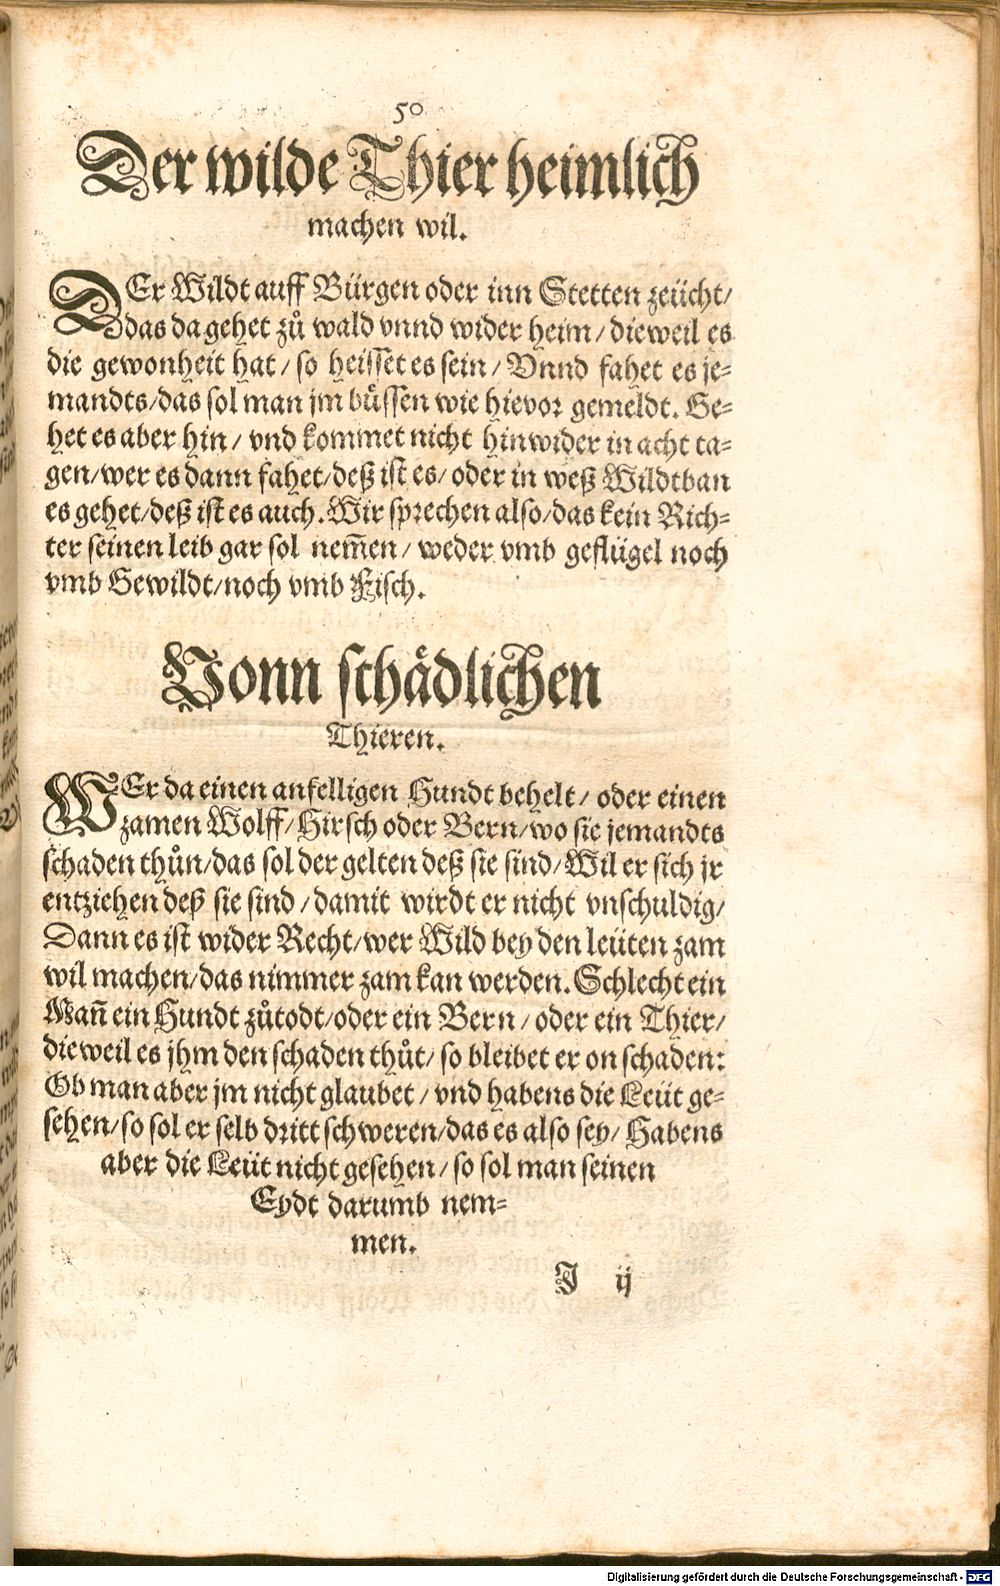 50
Der wilde Thier heimlich
machen wil.
DEr Wildt auff Bürgen oder inn Stetten zeücht/
das da gehet zů wald vnnd wider heim/ dieweil es
die gewonheit hat/ so heisset es sein/ Vnnd fahet es je-
mandts/das sol man jm bůssen wie hievor gemeldt. Ge-
het es aber hin/ vnd kommet nicht hinwider in acht ta-
gen/wer es dann fahet/deß ist es/ oder in weß Wildtban
es gehet/deß ist es auch. Wir sprechen also/das kein Rich-
ter seinen leib gar sol nem̃en/ weder vmb geflügel noch
vmb Gewildt/noch vmb Fisch.
Vonn schådlichen
Thieren.
WEr da einen anfelligen Hundt behelt/ oder einen
zamen Wolff/Hirsch oder Bern/wo sie jemandts
schaden thůn/das sol der gelten deß sie sind/Wil er sich jr
entziehen deß sie sind/damit wirdt er nicht vnschuldig/
Dann es ist wider Recht/wer Wild bey den leüten zam
wil machen/das nimmer zam kan werden. Schlecht ein
Mañ ein Hundt zůtodt/oder ein Bern/ oder ein Thier/
dieweil es jhm den schaden thůt/ so bleibet er on schaden:
Ob man aber jm nicht glaubet/ vnd habens die Leüt ge-
sehen/so sol er selb dritt schweren/das es also sey/ Habens
aber die Leüt nicht gesehen/ so sol man seinen
Eydt darumb nem-
men.
J ij
Digitalisierung gefördert durch die Deutsche Forschungsgemeinschaft - DFG